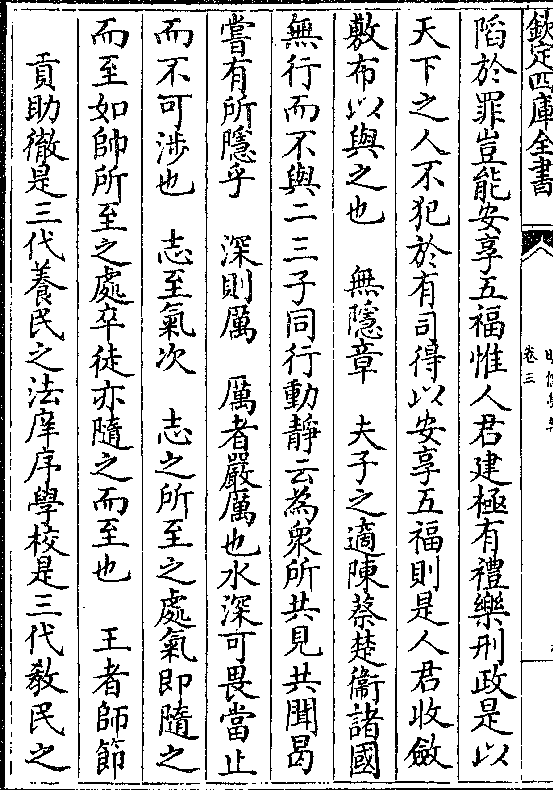 欽定四庫全書
卷三
陷於罪豈能安享五福惟人君建極有禮樂刑政是以
天下之人不犯於有司得以安享五福則是人君收斂
敷布以與之也　無隱章　夫子之適陳蔡楚衞諸國
無行而不與二三子同行動靜云為衆所共見共聞曷
嘗有所隱乎　深則厲　厲者嚴厲也水深可畏當止
而不可涉也　志至氣次　志之所至之處氣即隨之
而至如帥所至之處卒徒亦隨之而至也　王者師節
貢助徹是三代養民之法庠序學校是三代教民之